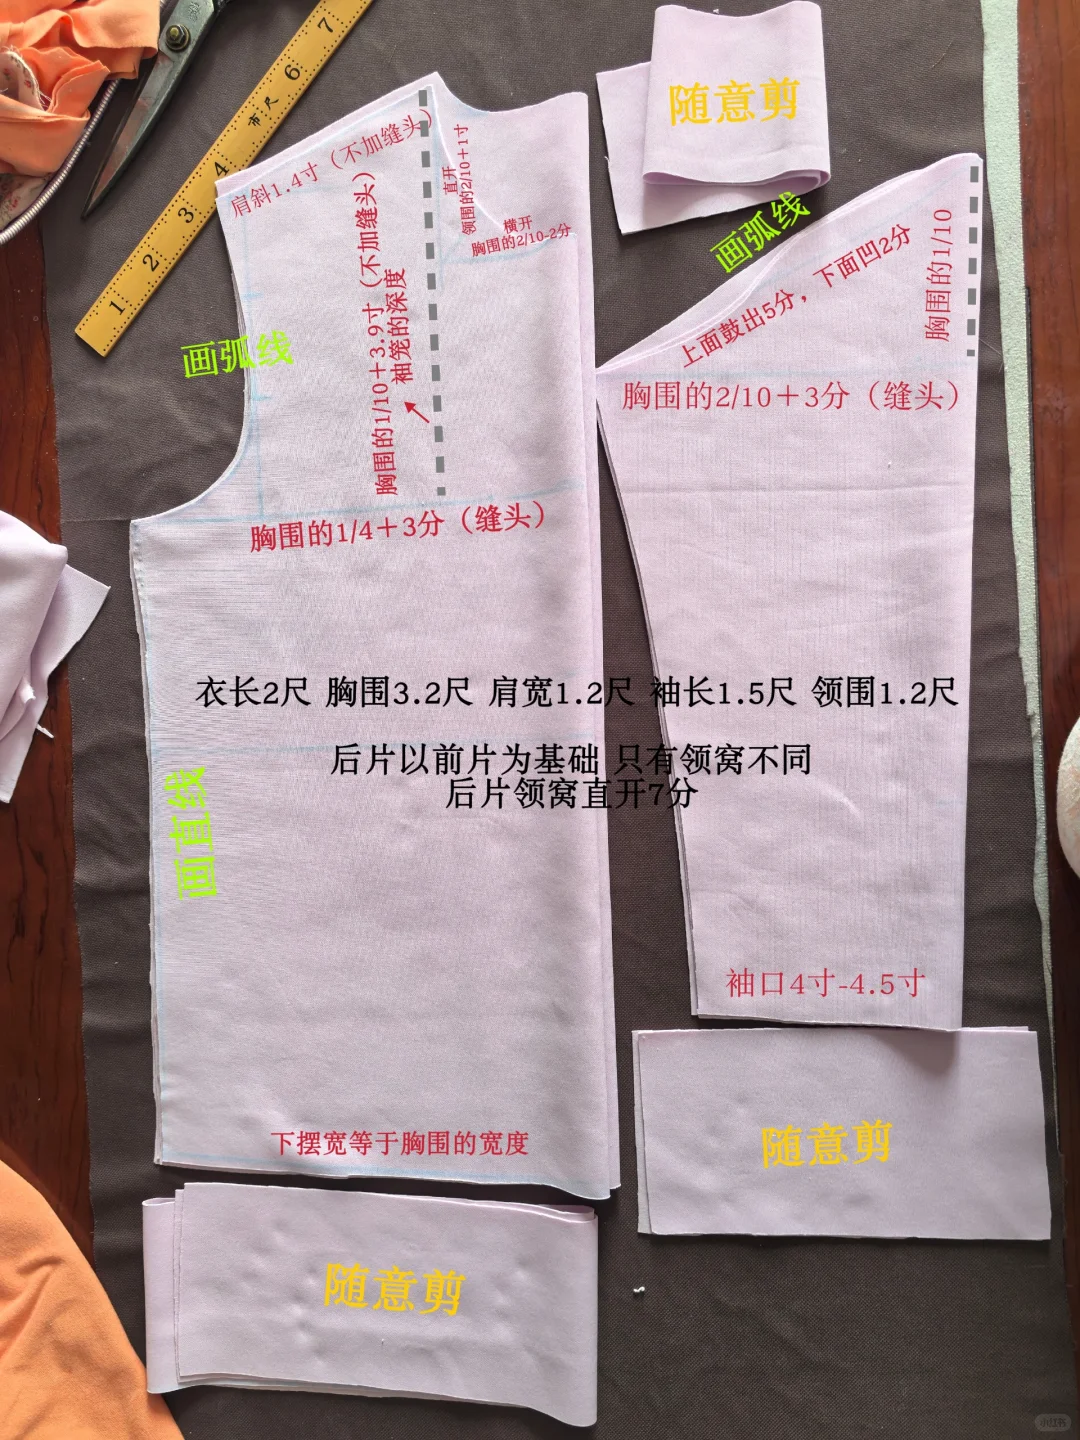 7
6
市尺
4
3
2
1
随意剪
肩斜1.4寸（不加缝头）
直开
领围的2/10+1寸
横开
胸围的2/10-2分
胸围的1/10+3.9寸（不加缝头）
袖笼的深度
画弧线
胸围的1/4+3分（缝头）
画弧线
上面鼓出5分，下面凹2分
胸围的1/10
胸围的2/10+3分（缝头）
衣长2尺 胸围3.2尺 肩宽1.2尺 袖长1.5尺 领围1.2尺
后片以前片为基础 只有领窝不同
后片领窝直开7分
画直线
袖口4寸-4.5寸
下摆宽等于胸围的宽度
随意剪
随意剪
小红书